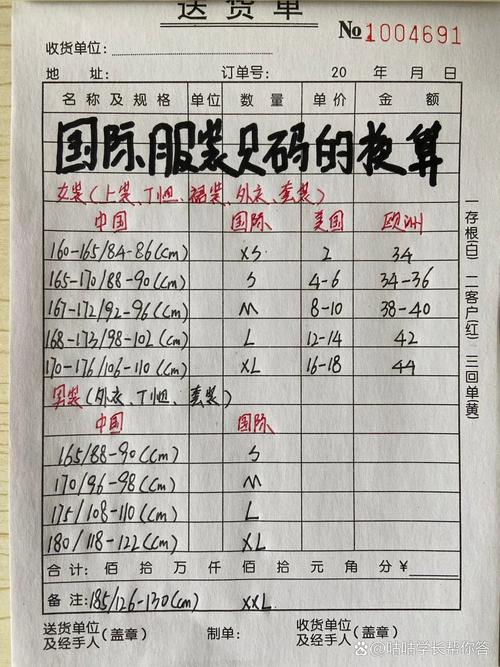 送货单
收货单位:
№1004691
地 址: 订单号: 20 年 月 日
名称及规格 单位 数量 单价 金额
国际服装尺码的换算
女装(上装、T恤、裙装、外衣、套装)
中国 国际 美国 欧洲
160-165/84-86(cm) XS 2 34
165-170/88-90(cm) S 4-6 34-36
167-172/92-96(cm) M 8-10 38-40
168-173/98-102(cm) L 12-14 42
170-176/106-110(cm) XL 16-18 44
男装(外衣、T恤、套装)
中国 国际
165/88-90(cm) S
170/96-98(cm) M
175/108-110(cm) L
180/118-122(cm) XL
合计: 佰 拾 万 仟 佰 拾 元 角 分¥
备注:185/126-130(cm) XXL
送货单位及经手人(盖章) 制单: 收货单位及经手人(盖章)
一存根(白) 二客户(红) 三回单(黄)
@咕咕学长帮你答